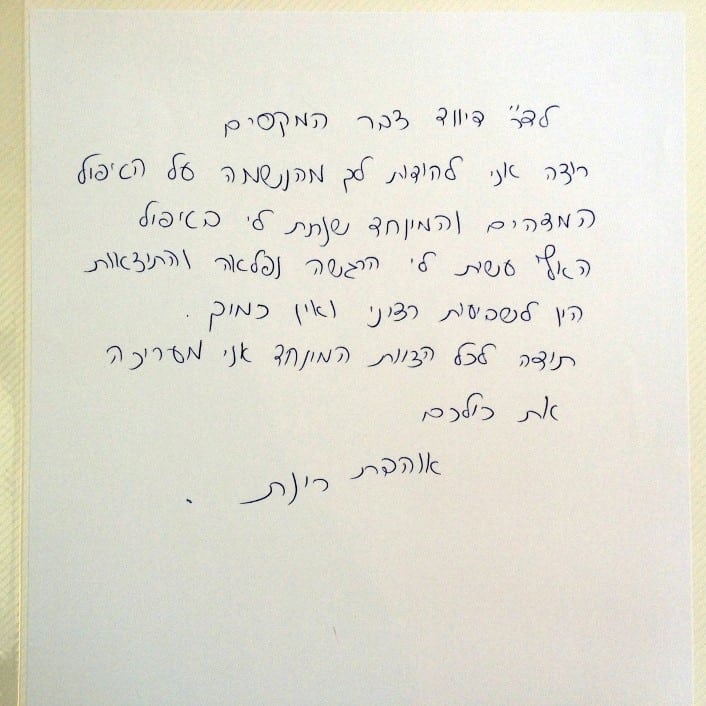 לד"ר דיויד צבר המקסים
רוצה אני להודות לך מהנשמה על הטיפול
המדהים והמיוחד שנתת לי בטיפול
האף עשית לי הרגשה נפלאה והתוצאות
הין לשביעות רצוני ואין כמוך.
תודה לכל הצוות המיוחד אני מעריכה
את כולכם
אוהבת רינת.